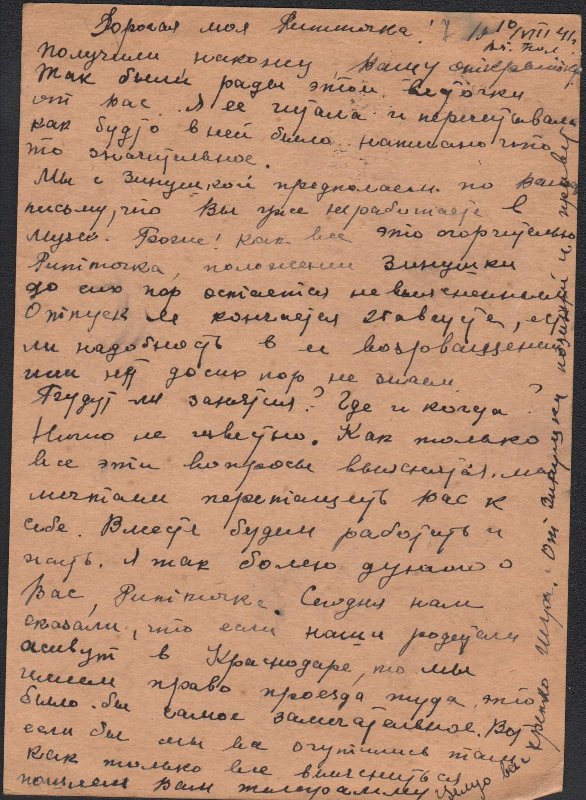 Дорогая моя Риточка! 10/VIII 41г.
получили наконец Вашу открытку
Так были рады этой весточки
от вас. Я её читала и перечитывала
как будто в ней было написано что
то значительное.
Мы с Зинушкой предполаем по Ваш
письму, что Вы уже не работаете в
музее. Боже! как все это огорчительно
Риточка, положении Зинушки
до сих пор остается не выясненным
Отпуск ее кончается 25 августа, ес
ли надобность в ее возвращении
или нет до сих пор не знаем
Будут ли занятия? Где и когда?
Ничго не известно. Как только
все эти вопросы выяснятся, мы
мечтаем перетащить вас к
себе. Вместе будем работать и
жить. Я так болею душой о
Вас, Риточка. Сегодня нам
сказали, что если наши родители
живут в Краснодаре, то мы
имеем право проезда туда, это
было бы самое замечательное. Вот
если бы мы вы очутились там
как только все выяснится
пошлем Вам телеграмму
Целую вас крепко Шура. От Зинушки поцелуй и привет